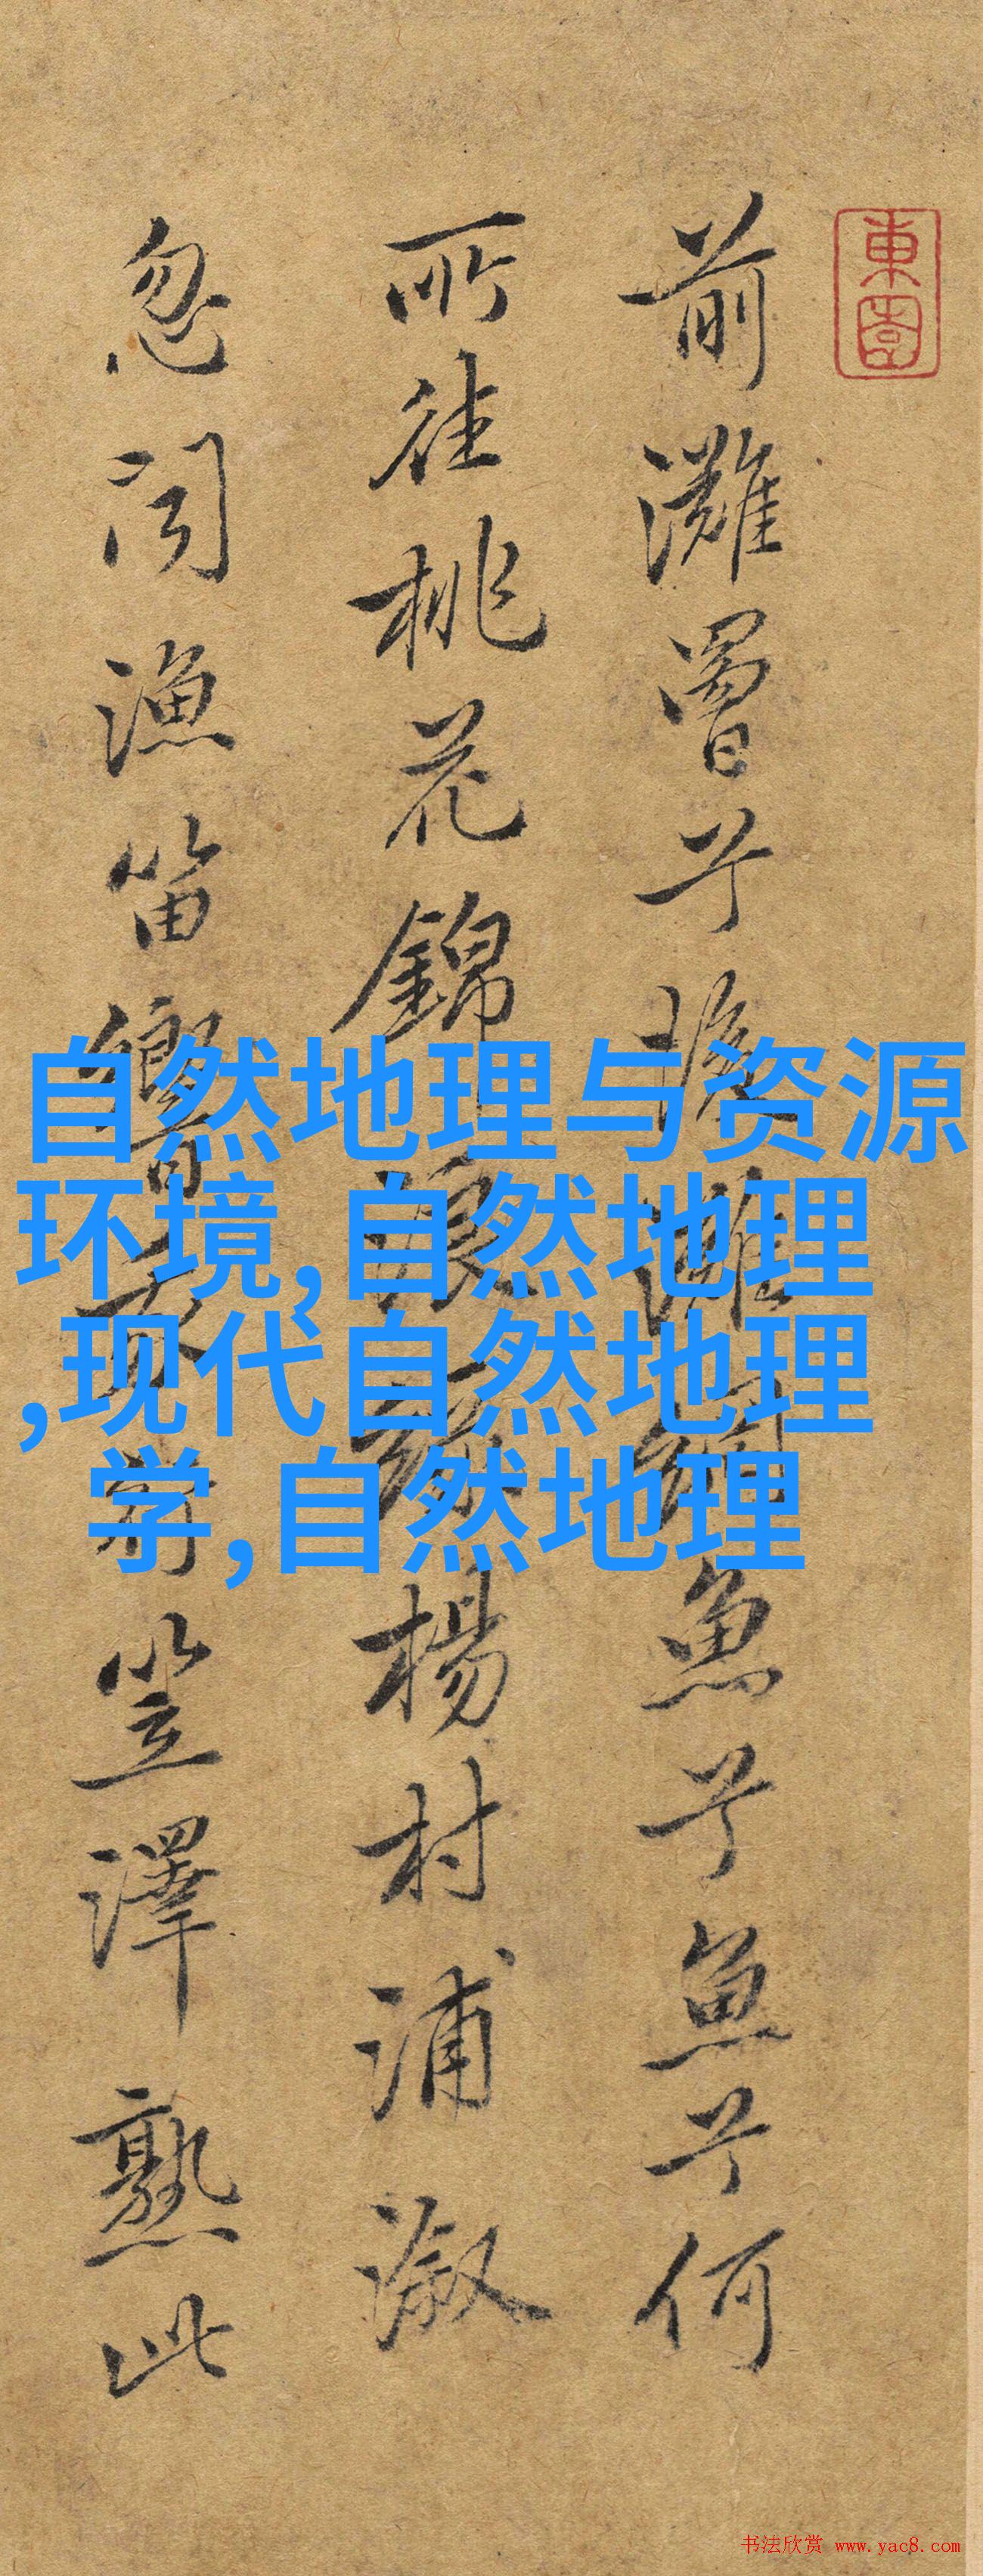 東園
前灘罾兮後灘網魚兮魚兮何
所往桃花錦浪緑楊村浦溆
忽闻漁笛響笠澤熟此
自然地理与资源
环境,自然地理
,现代自然地理
学,自然地理
书法欣赏 www.yac8.com